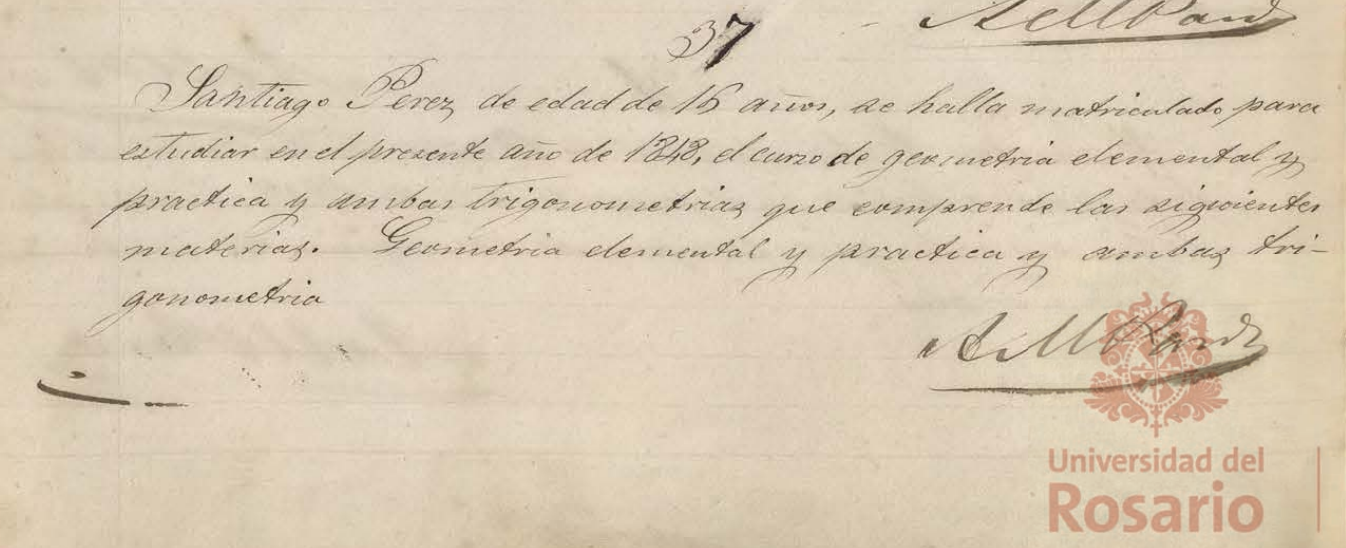 37
Santiago Perez de edad de 16 años, se halla matriculado para
estudiar en el presente año de 1848, el curso de geometria elemental y
practica y ambas trigonometrias que comprende las siguientes
materias. Geometria elemental y practica y ambas tri-
gonometria
Universidad del
Rosario